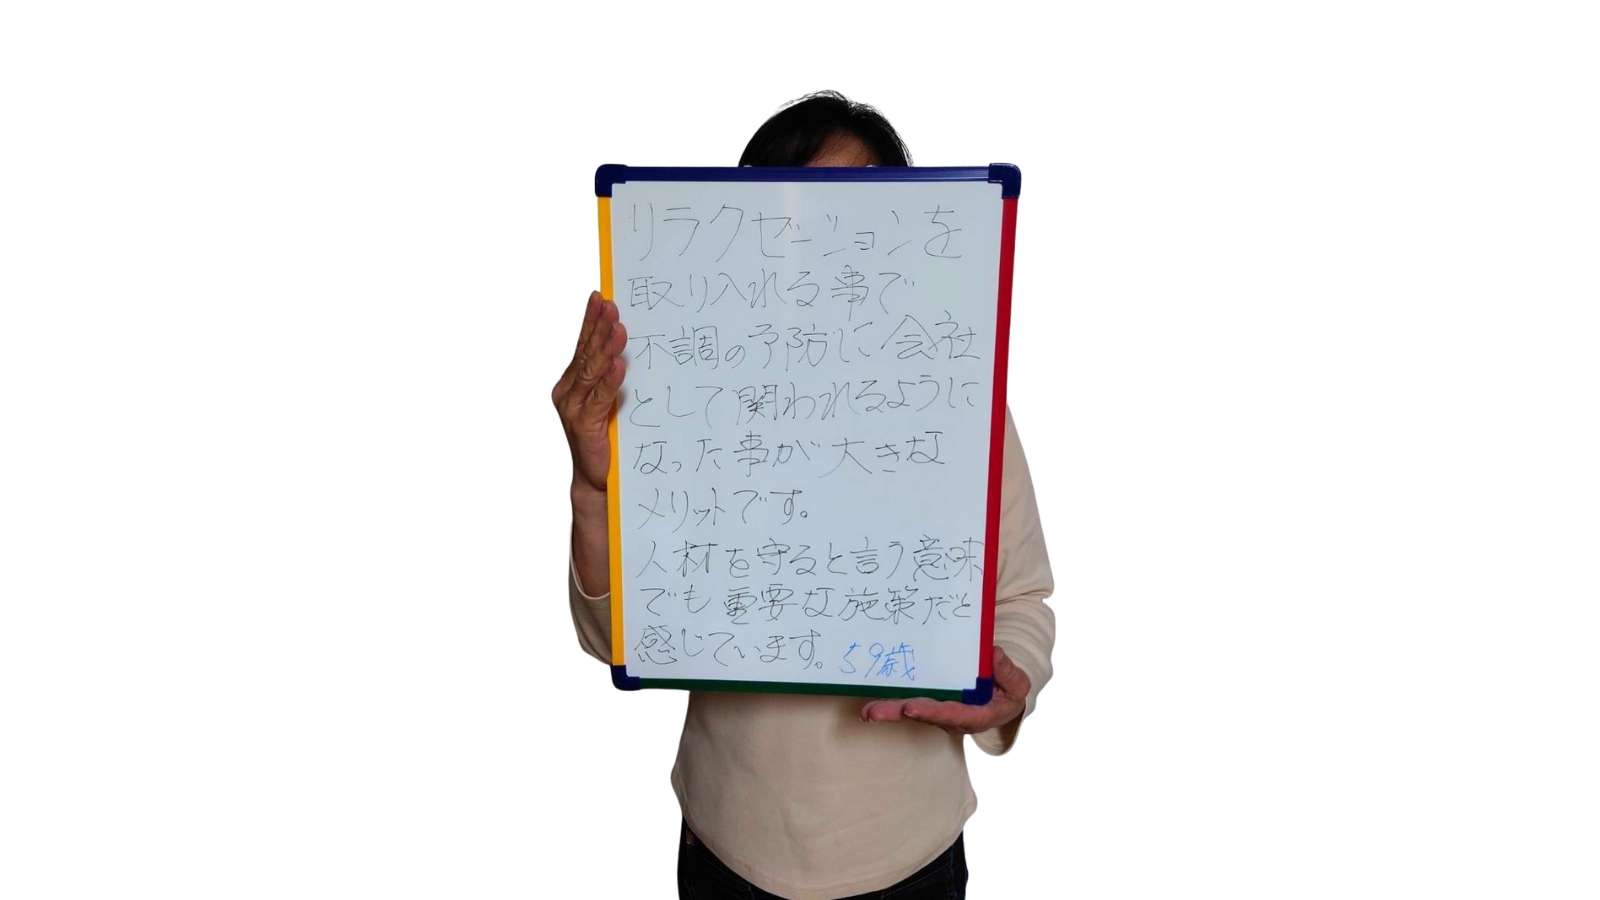 リラクゼーションを
取り入れる事で
不調の予防に会社
として関われるように
なった事が大きな
メリットです。
人材を守ると言う意味
でも重要な施策だと
感じています。59歳